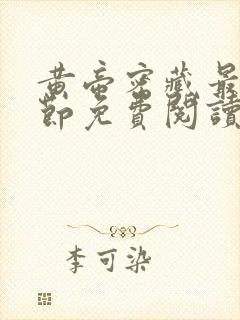 黄帝密藏最
節免費閱讀
李可染